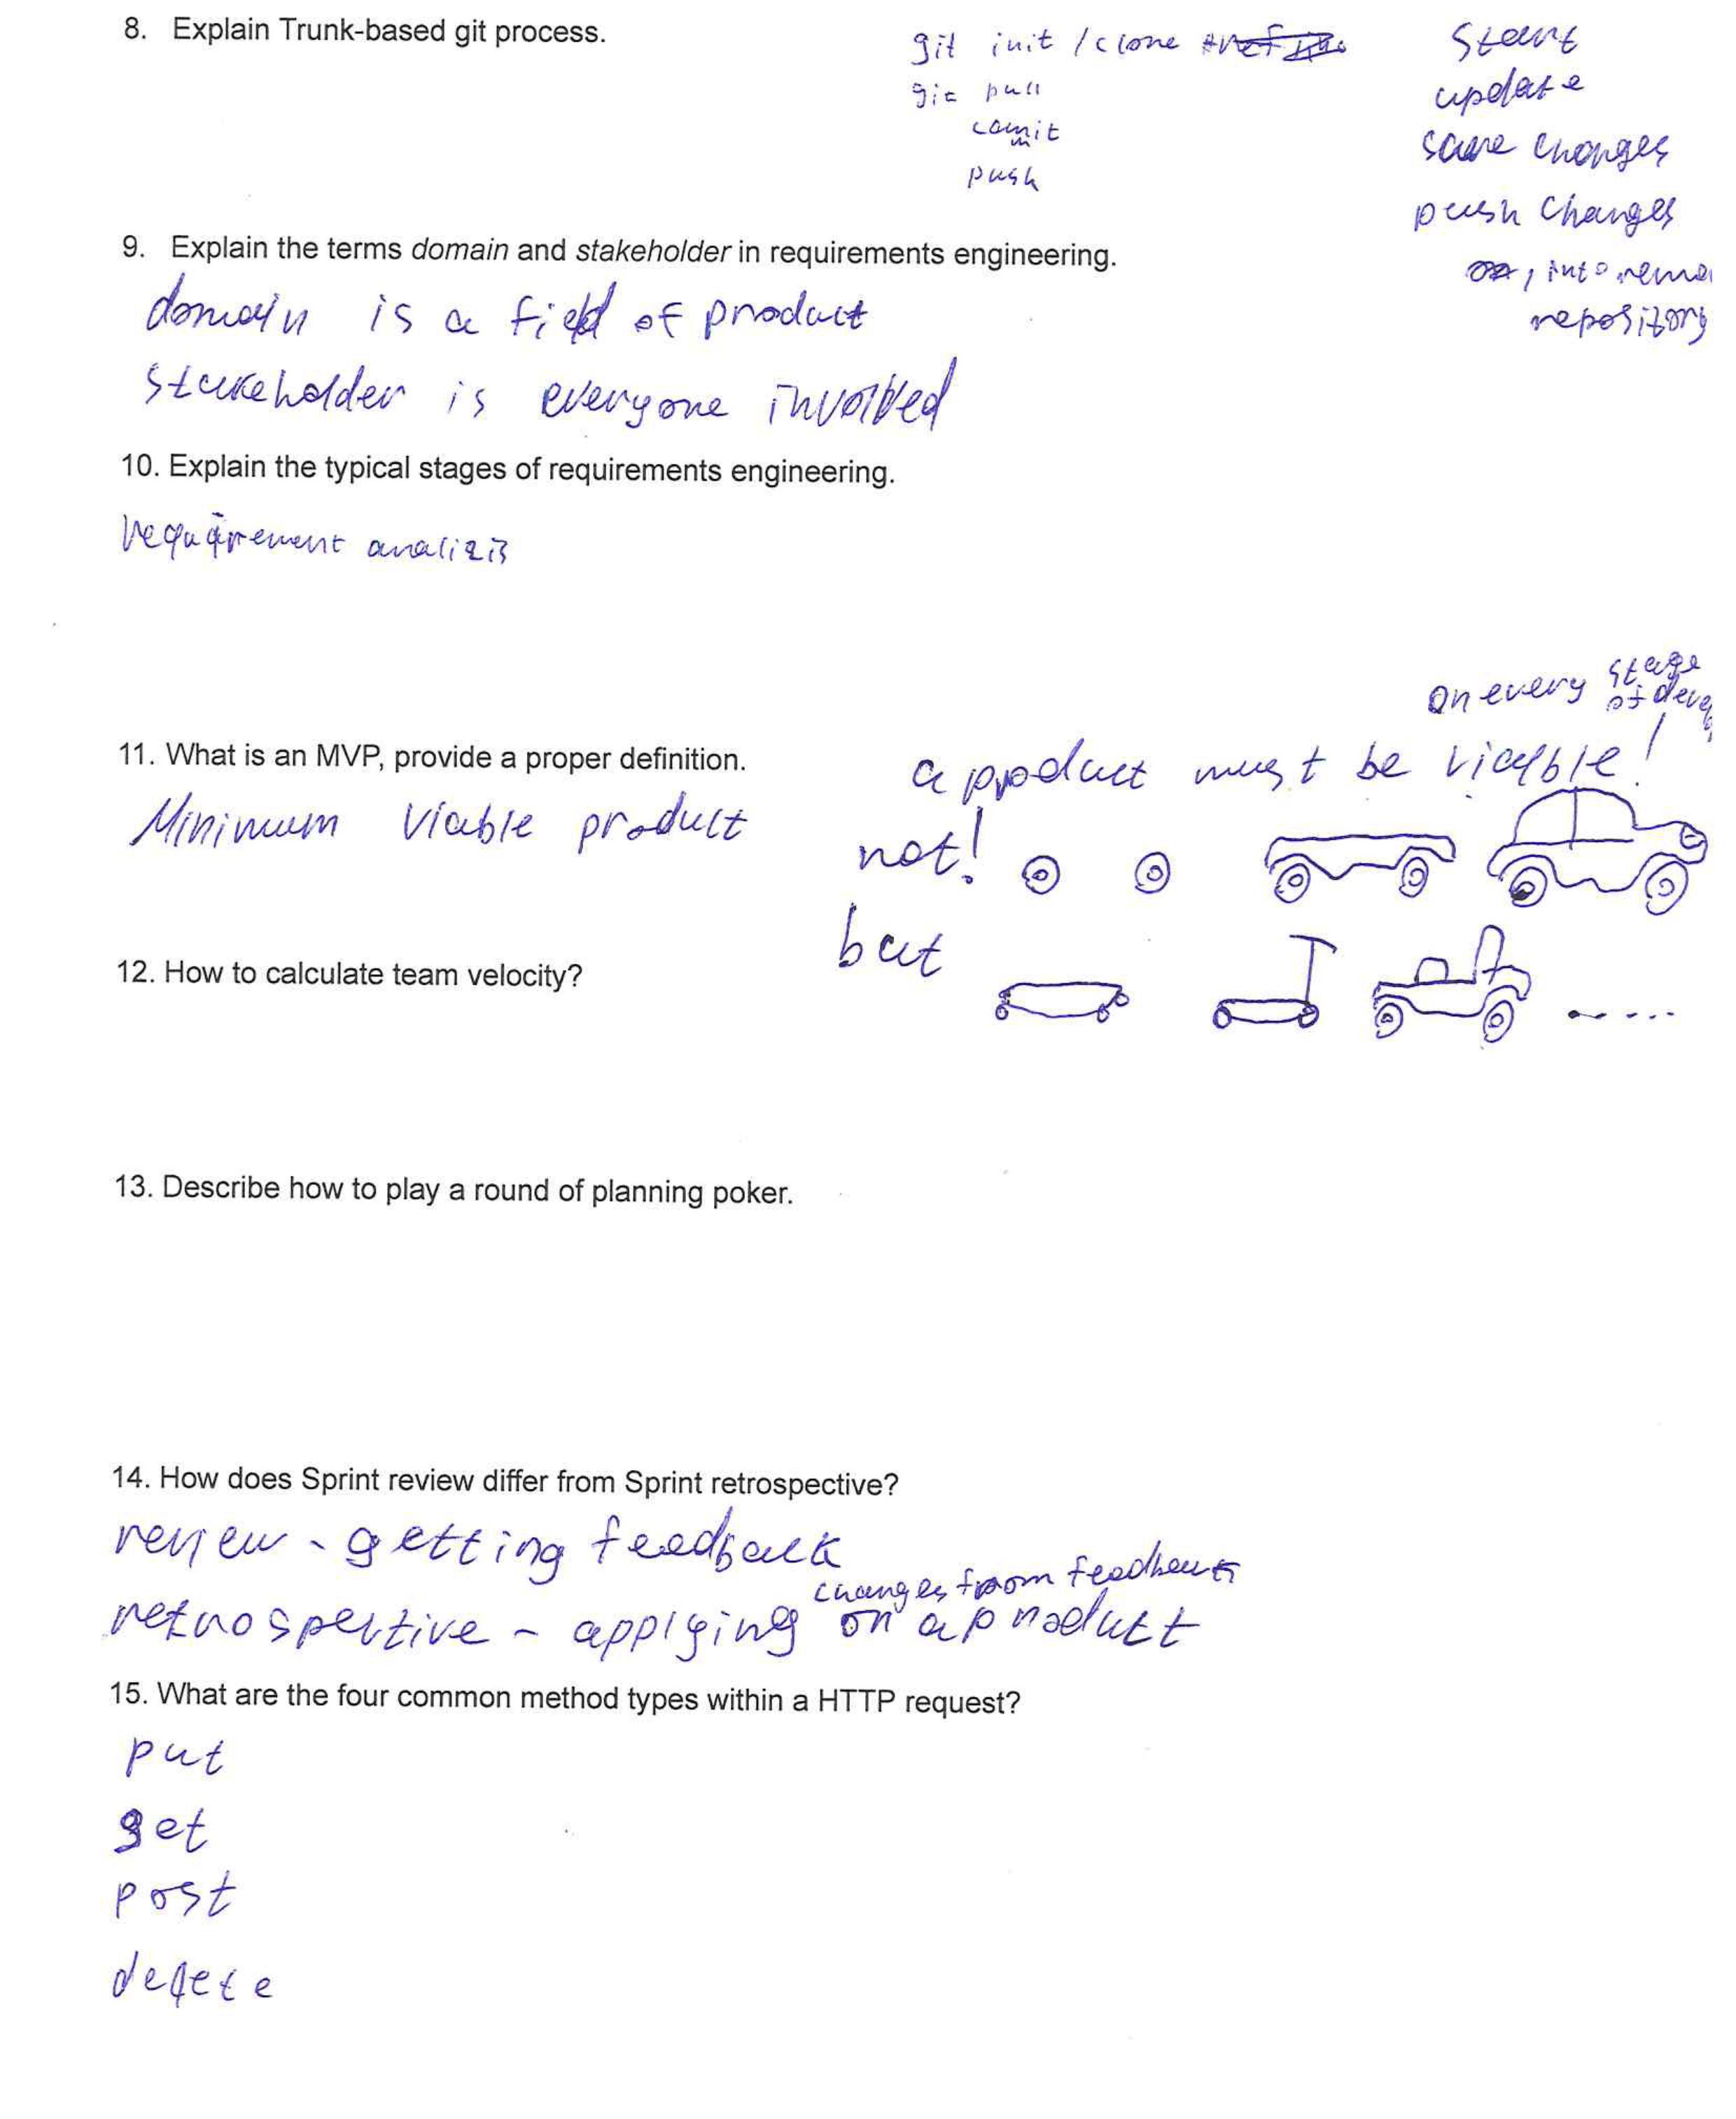 8. Explain Trunk-based git process.
git init / clone
git pull
commit
push
Start
update
save changes
push changes
, into remo
repository
9. Explain the terms domain and stakeholder in requirements engineering.
domain is a field of product
stakeholder is everyone involved
10. Explain the typical stages of requirements engineering.
requirement analizis
11. What is an MVP, provide a proper definition.
Minimum viable product
on every stage
of deve
a product must be viable!
not!
but
12. How to calculate team velocity?
13. Describe how to play a round of planning poker.
14. How does Sprint review differ from Sprint retrospective?
review - getting feedback
changes from feedback
retrospective - applying on a product
15. What are the four common method types within a HTTP request?
put
get
post
delete